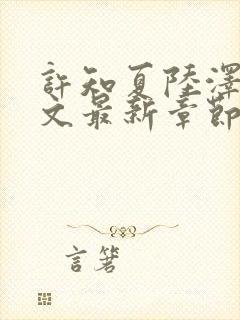 許知夏陸澤
文最新章節
言箸